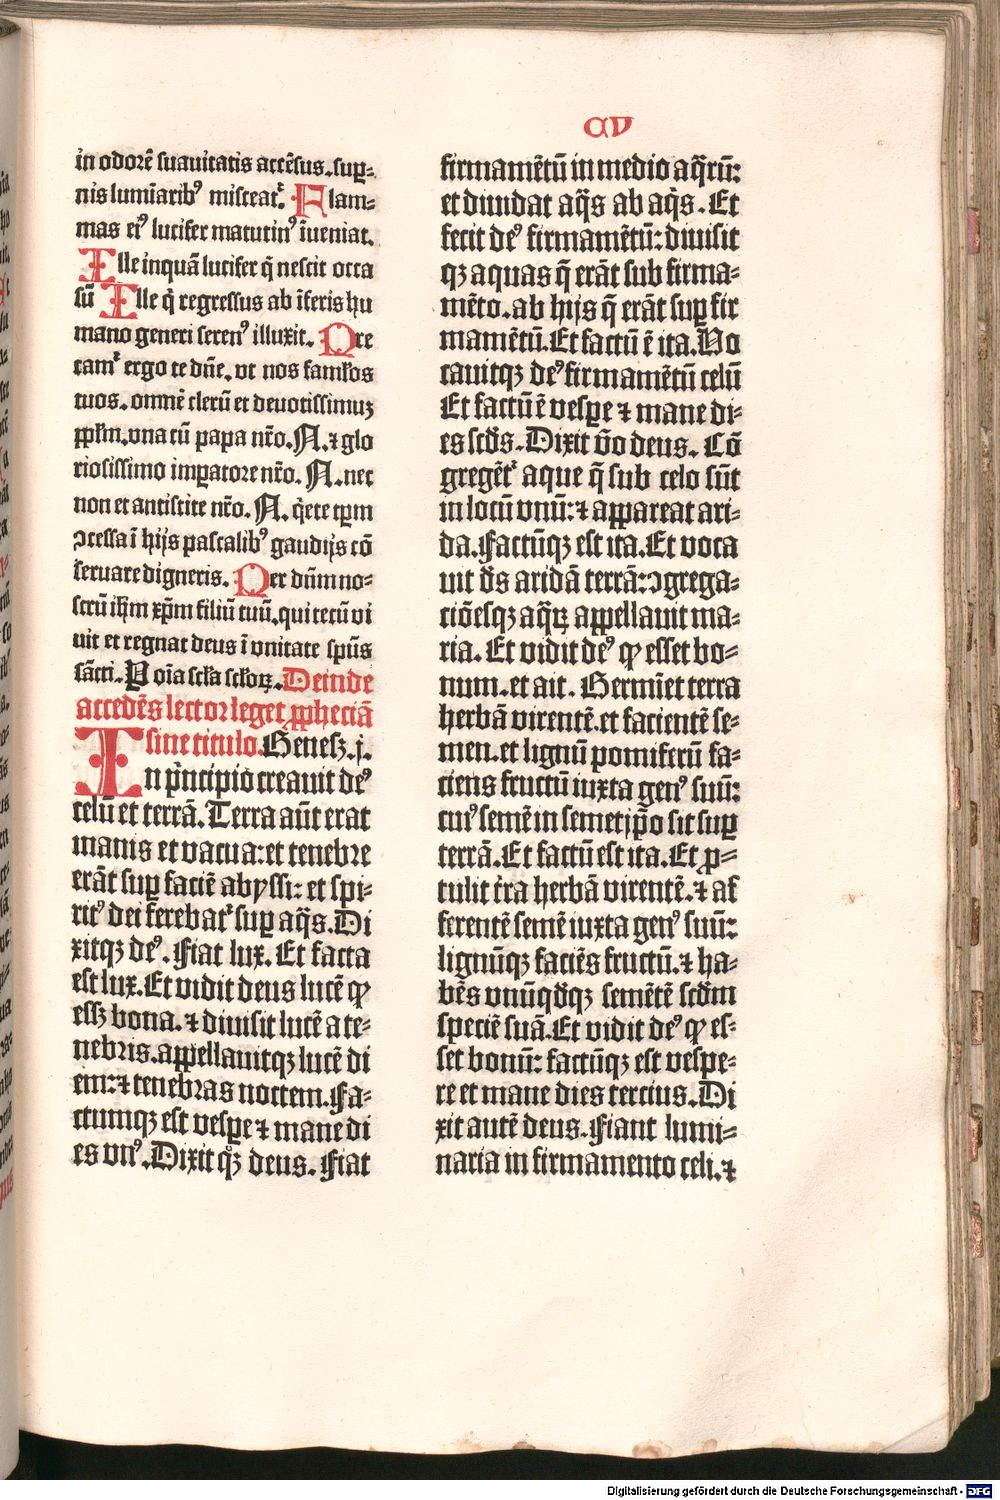 CV
in odorē suauitatis accēsus.sup-
nis lumīaribꝰ misceatᷣ. Flam-
mas eiꝰ lucifer matutinꝰ īueniat.
Ille inquā lucifer q̄ nescit occa
sū Ille q̄ regressus ab īferis hu
mano generi serenꝰ illuxit. Pre
camᷣ ergo te dn̄e. vt nos famłos
tuos. omnē clerū et deuotissimuꝫ
pp̄łm. vna cū papa nr̄o. N. ⁊ glo
riosissimo impatore nr̄o. N. nec
non et antistite nr̄o. N. q̄ete tp̄m
ɔcessa ī hijs pascalibꝰ gaudijs cō
seruare digneris. Per dn̄m no-
strū ih̄m xp̄m filiū tuū. qui tecū vi
uit et regnat deus ī vnitate spūs
sācti. P oīa scła sckoꝝ. Deinde
accedēs lector leget ꝓpheciā
sine titulo. Genesꝫ. j.
In pͥncipio creauit deꝰ
celū et terrā. Terra aūt erat
inanis et vacua: et tenebre
erāt sup faciē abyssi: et spi-
ritꝰ dei ferebatᷣ sup aq̄s. Di
xitqꝫ deꝰ. Fiat lux. Et facta
est lux. Et vidit deus lucē ꝙ
essꝫ bona. ⁊ diuisit lucē a te-
nebris. appellauitqꝫ lucē di
em: ⁊ tenebras noctem. Fa-
ctumqꝫ est vespe ⁊ mane di
es vnꝰ. Dixit qͦꝫ deus. Fiat
firmamētū in medio aq̄rū:
et diuidat aq̄s ab aq̄s. Et
fecit deꝰ firmamētū: diuisit
qꝫ aquas q̄ erāt sub firma-
mēto. ab hijs q̄ erāt sup fir
mamētū. Et factū ē ita. Vo
cauitqꝫ deꝰ firmamētū celū
Et factū ē vespe ⁊ mane di-
es scd̄s. Dixit v̄o deus. Cō
gregētᷣ aque q̄ sub celo sūt
in locū vnū: ⁊ appareat ari-
da. Factūqꝫ est ita. Et voca
uit d̄s aridā terrā: ɔgrega-
tiōesqꝫ aq̄ꝝ appellauit ma-
ria. Et vidit deꝰ ꝙ esset bo-
num. et ait. Germīet terra
herbā virentē. et facientē se-
men. et lignū pomiferū fa-
ciens fructū iuxta genꝰ suū:
cuiꝰ semē in semetip̄o sit sup
terrā. Et factū est ita. Et ꝓ-
tulit t̄ra herbā virentē. ⁊ af
ferentē semē iuxta genꝰ suū:
lignūqꝫ faciēs fructū. ⁊ ha-
bēs vnūqd̄qꝫ semētē scd̄m
speciē suā. Et vidit deꝰ ꝙ es-
set bonū: factūqꝫ est vespe-
re et mane dies tercius. Di
xit autē deus. Fiant lumi-
naria in firmamento celi. ⁊
Digitalisierung gefördert durch die Deutsche Forschungsgemeinschaft - DFG